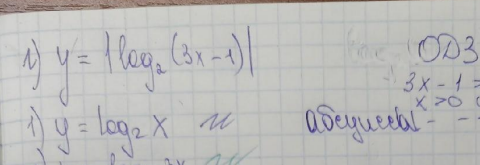 1) y = |log₂(3x-1)|
ОДЗ
3x - 1
x > 0
1) y = log₂ x
абсциссы - -